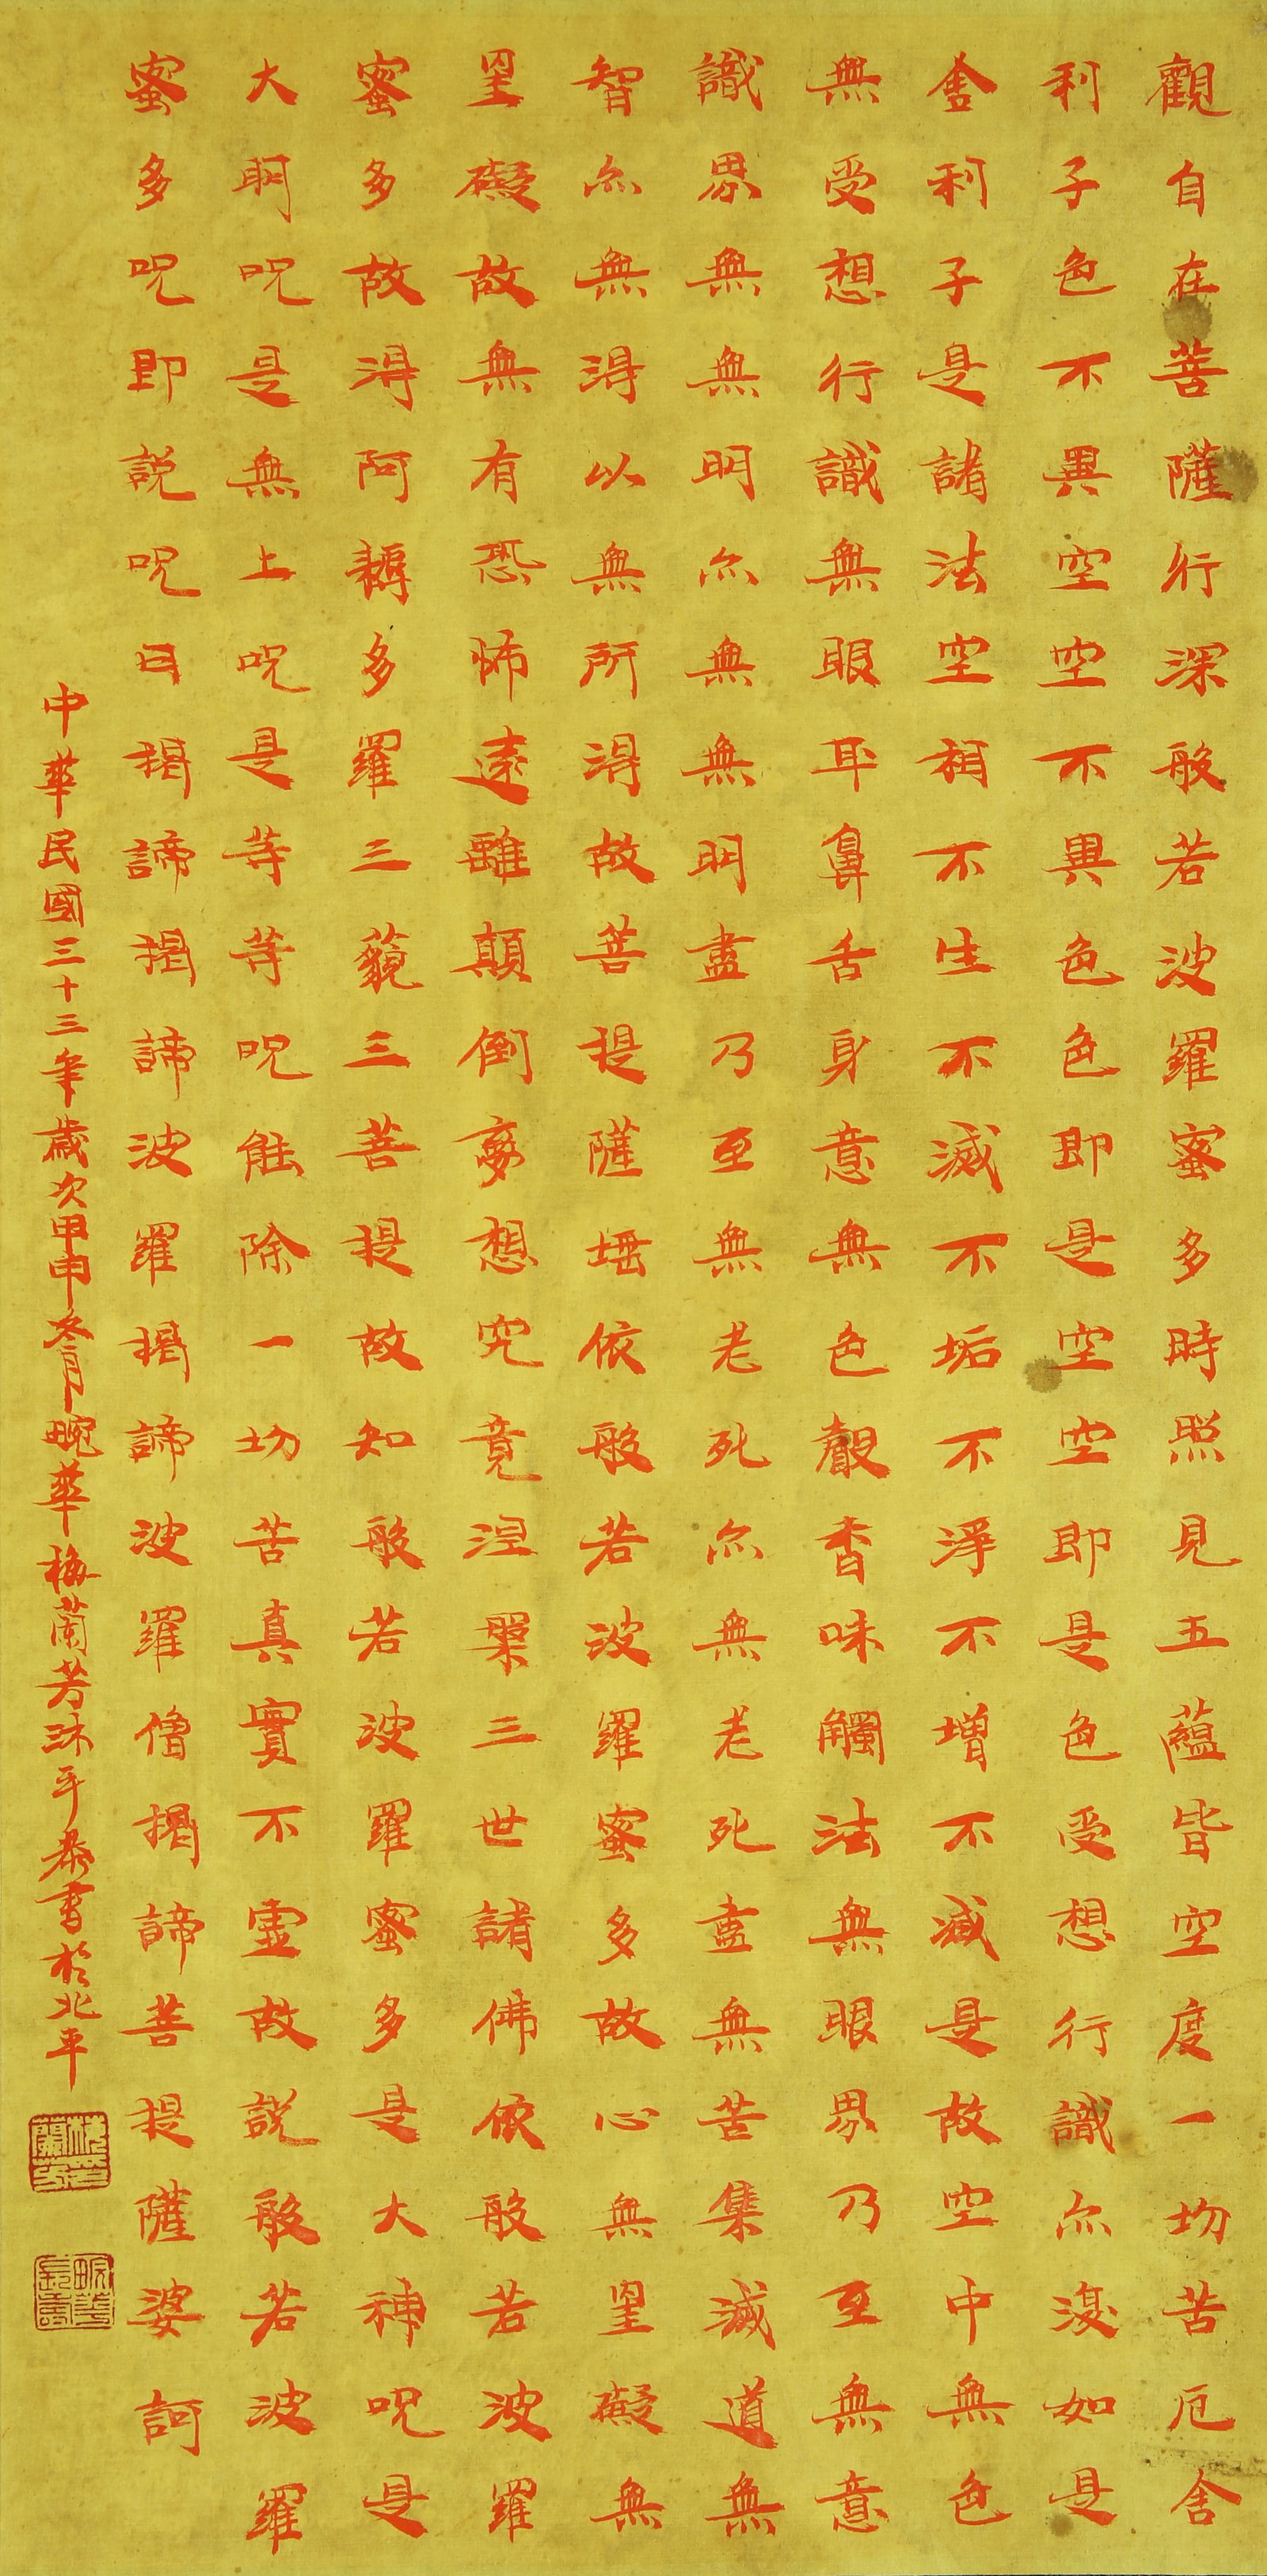 觀自在菩薩行深般若波羅蜜多時照見五蘊皆空度一切苦厄舍
利子色不異空空不異色色即是空空即是色受想行識亦復如是
舍利子是諸法空相不生不滅不垢不淨不增不減是故空中無色
無受想行識無眼耳鼻舌身意無色聲香味觸法無眼界乃至無意
識界無無明亦無無明盡乃至無老死亦無老死盡無苦集滅道無
智亦無得以無所得故菩提薩埵依般若波羅蜜多故心無罣礙無
罣礙故無有恐怖遠離顛倒夢想究竟涅槃三世諸佛依般若波羅
蜜多故得阿耨多羅三藐三菩提故知般若波羅蜜多是大神咒是
大明咒是無上咒是等等咒能除一切苦真實不虛故說般若波羅
蜜多咒即說咒曰揭諦揭諦波羅揭諦波羅僧揭諦菩提薩婆訶
中華民國三十三年歲次甲申冬月畹華梅蘭芳沐手恭書於北平